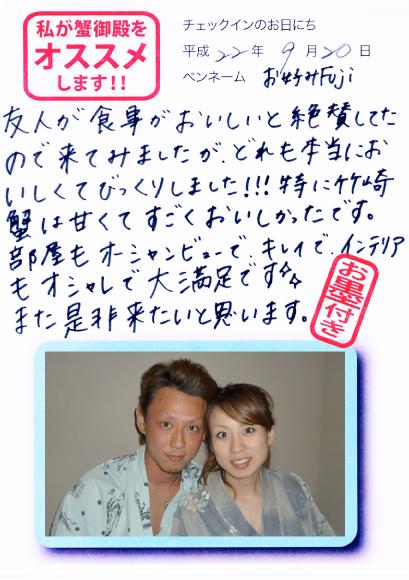 私が蟹御殿を
オススメ
します!!
チェックインのお日にち
平成 22年 9月 20日
ペンネーム お好みFuji
友人が食事がおいしいと絶賛してた
ので来てみましたが、どれも本当にお
いしくてびっくりしました!!!特に竹崎
蟹は甘くてすごくおいしかったです。
部屋もオーシャンビューで、キレイで、インテリア
もオシャレで大満足です☆☆
また是非来たいと思います。
お墨付き